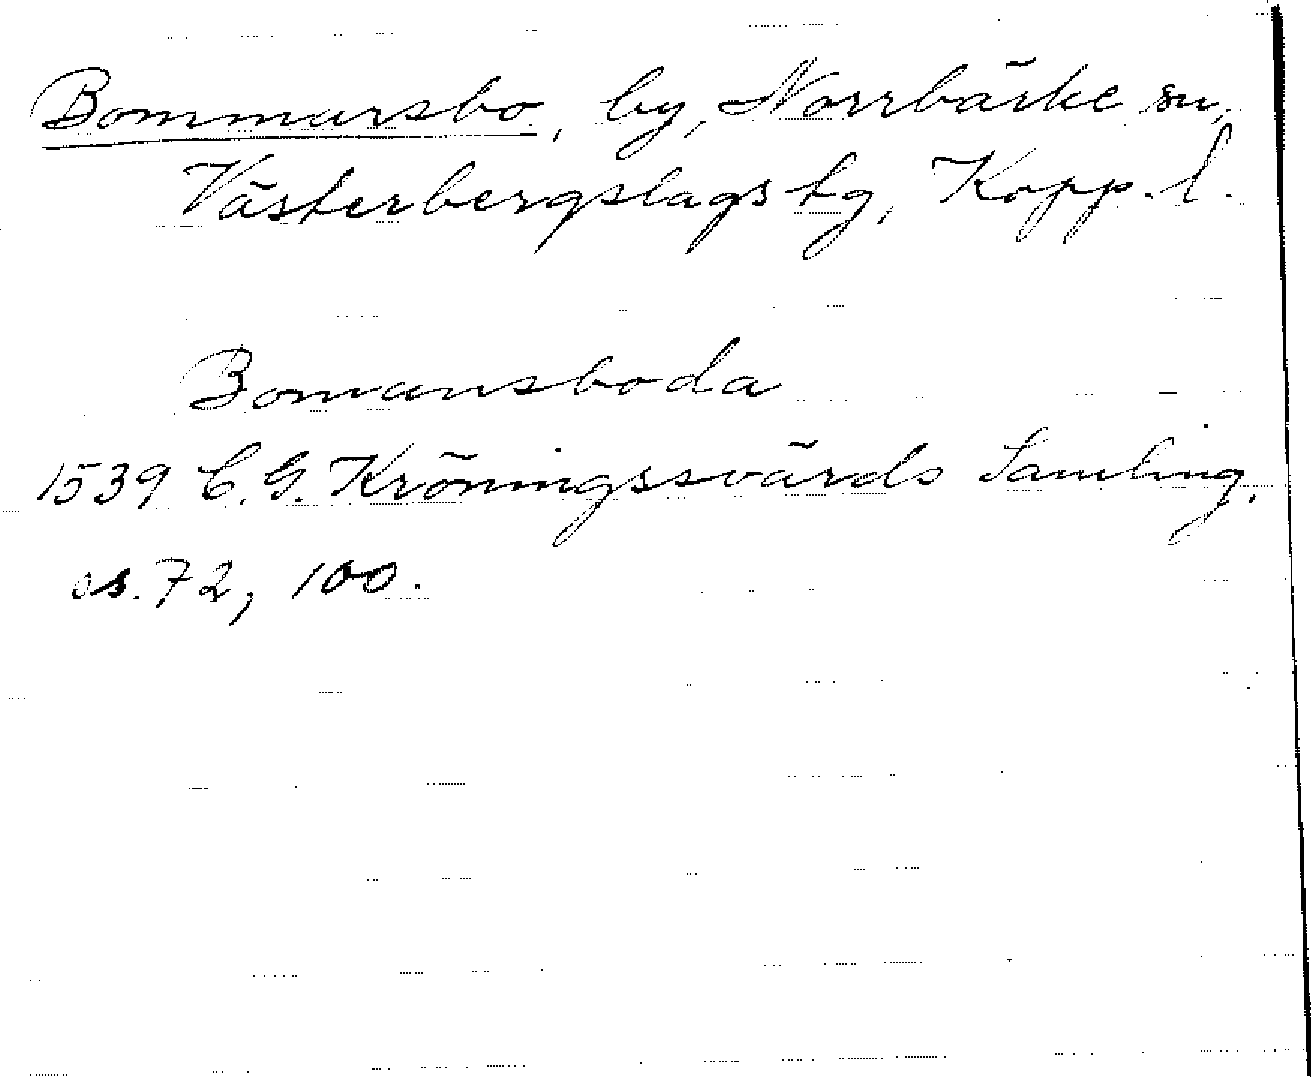 Bommarsbo, by, Norrbärke sn,
Västerbergslags tg, Kopp. l.
Bomansboda
1539 C. G. Kröningssvärds Samling,
s. 72, 100.